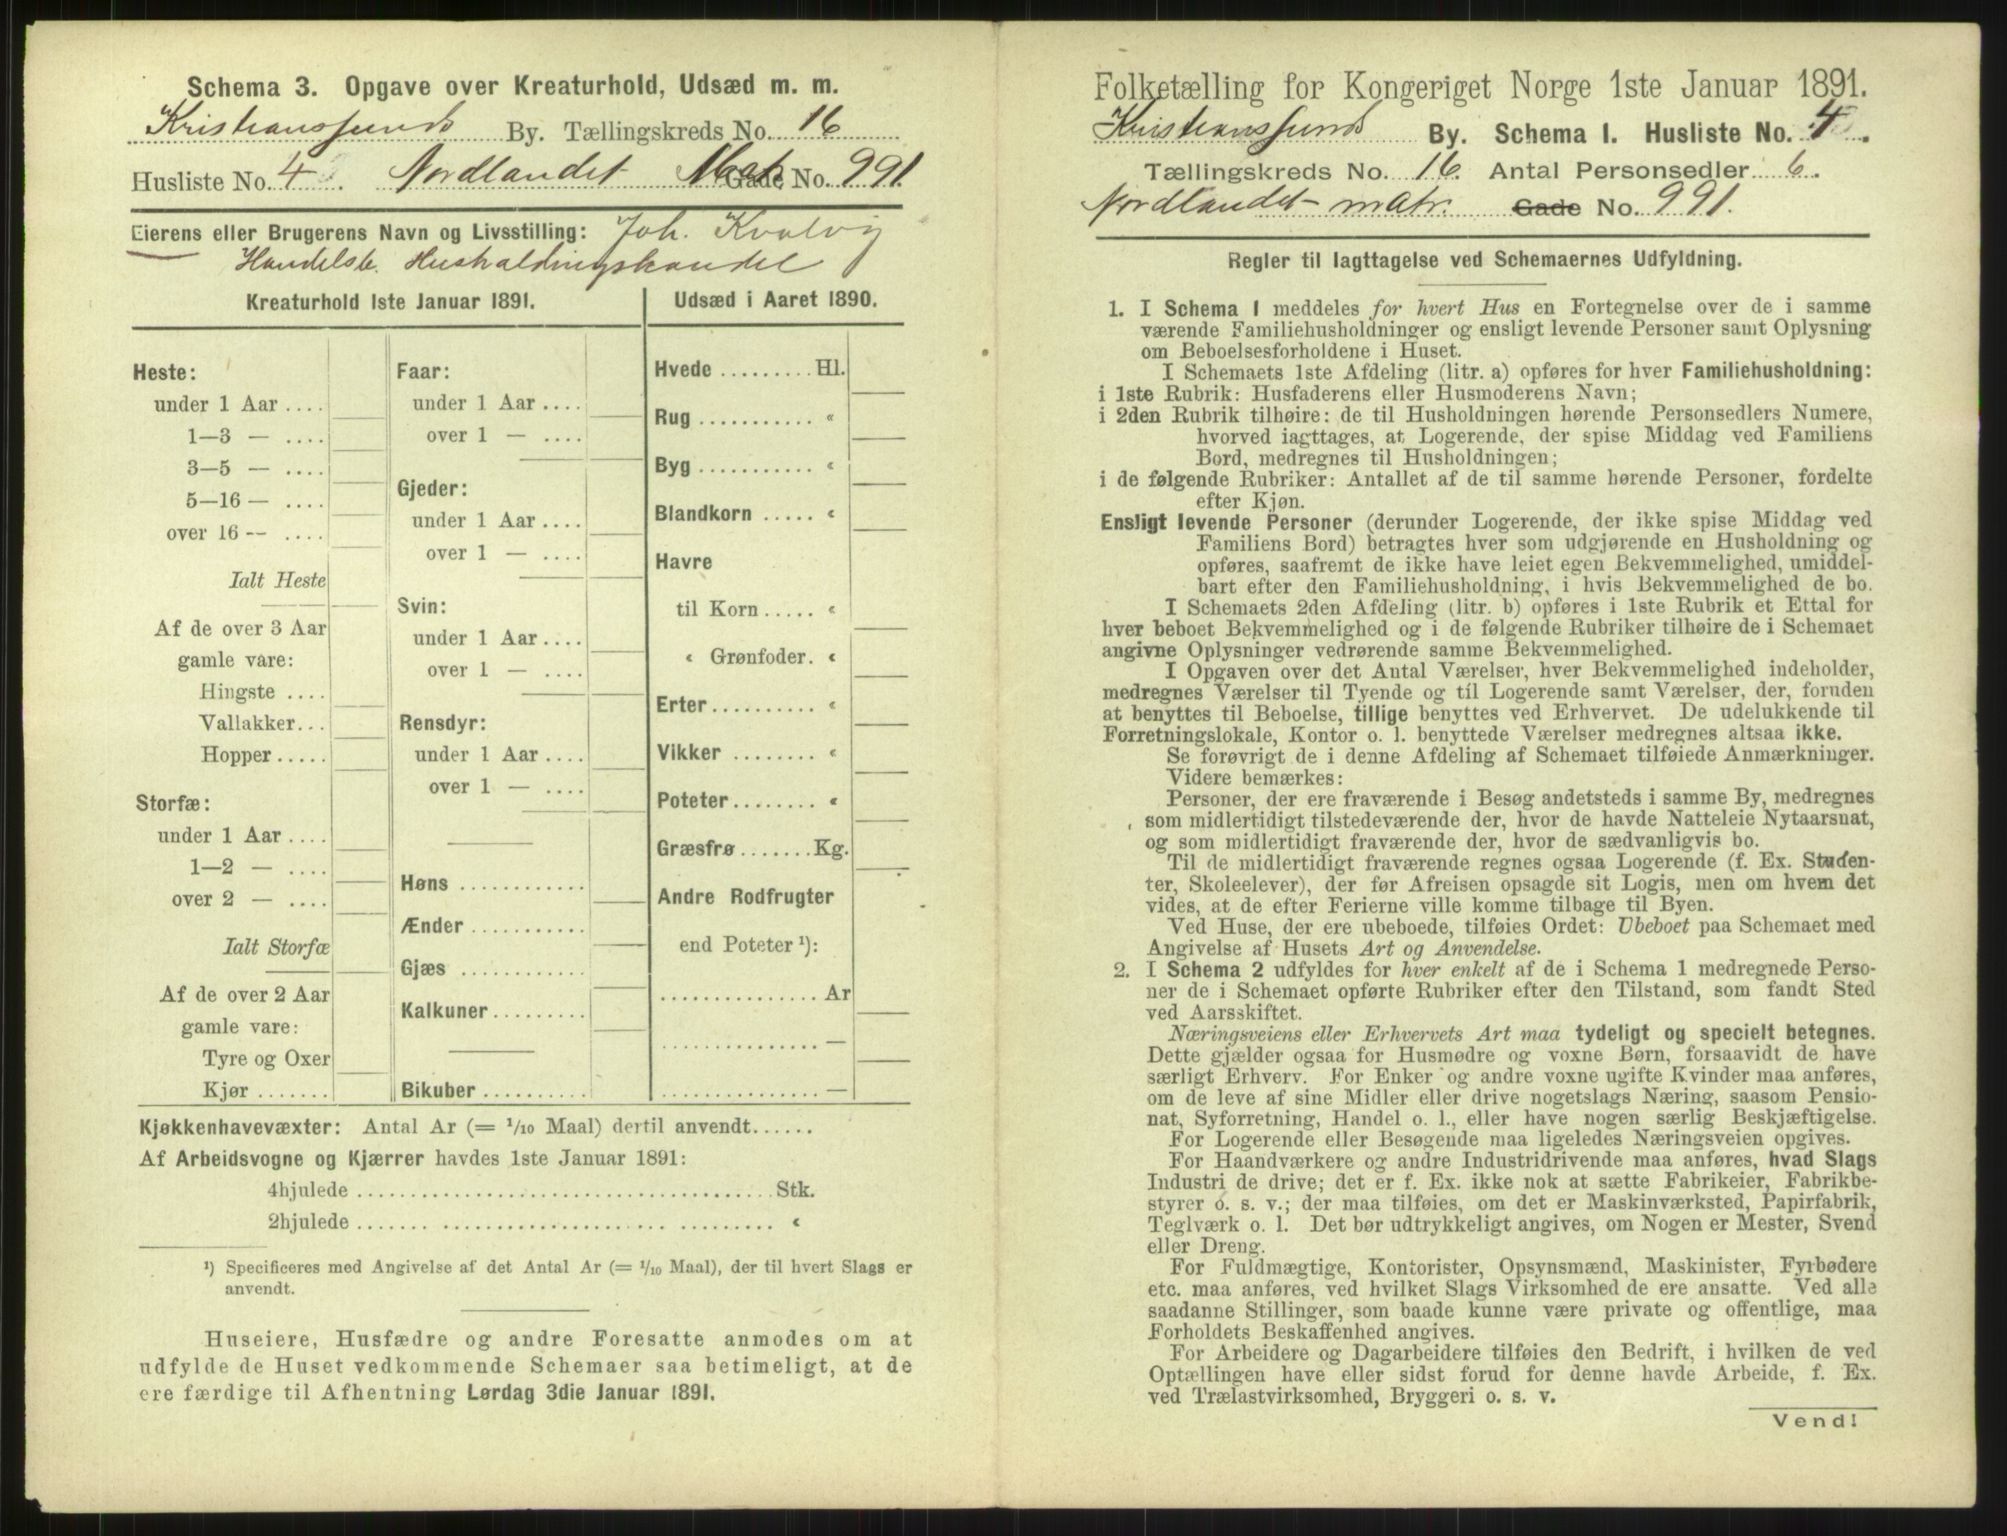 Schema 3. Opgave over Kreaturhold, Udsæd m. m.
Kristianssunds By. Tællingskreds No. 16
Husliste No. 4. Nordlandet Matr. Gade No. 991.
Eierens eller Brugerens Navn og Livsstilling: Joh. Kvalvig
Handelsb. Husholdningshandel
Kreaturhold 1ste Januar 1891.
Heste:
under 1 Aar ....
1—3 — ....
3—5 — ....
5—16 — ....
over 16 — ....
Ialt Heste
Af de over 3 Aar
gamle vare:
Hingste ....
Vallakker...
Hopper.....
Storfæ:
under 1 Aar ....
1—2 — ....
over 2 — ....
Ialt Storfæ
Af de over 2 Aar
gamle vare:
Tyre og Oxer
Kjør .......
Faar:
under 1 Aar ....
over 1 — ....
Gjeder:
under 1 Aar ....
over 1 — ....
Svin:
under 1 Aar ....
over 1 — ....
Rensdyr:
under 1 Aar ....
over 1 — ....
Høns ............
Ænder ...........
Gjæs ............
Kalkuner.........
Bikuber ..........
Udsæd i Aaret 1890.
Hvede ......... Hl.
Rug ........... «
Byg ........... «
Blandkorn ..... «
Havre
til Korn ..... «
« Grønfoder. «
Erter.......... «
Vikker ........ «
Poteter........ «
Græsfrø ....... Kg.
Andre Rodfrugter
end Poteter ¹):
............... Ar
............... —
............... —
Kjøkkenhavevæxter: Antal Ar (= 1/10 Maal) dertil anvendt......
Af Arbeidsvogne og Kjærrer havdes 1ste Januar 1891:
4hjulede ........................................ Stk.
2hjulede ........................................ «
¹) Specificeres med Angivelse af det Antal Ar (= 1/10 Maal), der til hvert Slags er
anvendt.
Huseiere, Husfædre og andre Foresatte anmodes om at
udfylde de Huset vedkommende Schemaer saa betimeligt, at de
ere færdige til Afhentning Lørdag 3die Januar 1891.
Folketælling for Kongeriget Norge 1ste Januar 1891.
Kristianssunds By. Schema 1. Husliste No. 4.
Tællingskreds No. 16. Antal Personsedler 6.
Nordlandet matr. Gade No. 991.
Regler til Iagttagelse ved Schemaernes Udfyldning.
1. I Schema 1 meddeles for hvert Hus en Fortegnelse over de i samme
værende Familiehusholdninger og ensligt levende Personer samt Oplysning
om Beboelsesforholdene i Huset.
I Schemaets 1ste Afdeling (litr. a) opføres for hver Familiehusholdning:
i 1ste Rubrik: Husfaderens eller Husmoderens Navn;
i 2den Rubrik tilhøire: de til Husholdningen hørende Personsedlers Numere,
hvorved iagttages, at Logerende, der spise Middag ved Familiens
Bord, medregnes til Husholdningen;
i de følgende Rubriker: Antallet af de til samme hørende Personer, fordelte
efter Kjøn.
Ensligt levende Personer (derunder Logerende, der ikke spise Middag ved
Familiens Bord) betragtes hver som udgjørende en Husholdning og
opføres, saafremt de ikke have leiet egen Bekvemmelighed, umiddel-
bart efter den Familiehusholdning, i hvis Bekvemmelighed de bo.
I Schemaets 2den Afdeling (litr. b) opføres i 1ste Rubrik et Ettal for
hver beboet Bekvemmelighed og i de følgende Rubriker tilhøire de i Schemaet
angivne Oplysninger vedrørende samme Bekvemmelighed.
I Opgaven over det Antal Værelser, hver Bekvemmelighed indeholder,
medregnes Værelser til Tyende og til Logerende samt Værelser, der, foruden
at benyttes til Beboelse, tillige benyttes ved Erhvervet. De udelukkende til
Forretningslokale, Kontor o. l. benyttede Værelser medregnes altsaa ikke.
Se forøvrigt de i denne Afdeling af Schemaet tilføiede Anmærkninger.
Videre bemærkes:
Personer, der ere fraværende i Besøg andetsteds i samme By, medregnes
som midlertidigt tilstedeværende der, hvor de havde Natteleie Nytaarsnat,
og som midlertidigt fraværende der, hvor de sædvanligvis bo.
Til de midlertidigt fraværende regnes ogsaa Logerende (f. Ex. Studen-
ter, Skoleelever), der før Afreisen opsagde sit Logis, men om hvem det
vides, at de efter Ferierne ville komme tilbage til Byen.
Ved Huse, der ere ubeboede, tilføies Ordet: Ubeboet paa Schemaet med
Angivelse af Husets Art og Anvendelse.
2. I Schema 2 udfyldes for hver enkelt af de i Schema 1 medregnede Perso-
ner de i Schemaet opførte Rubriker efter den Tilstand, som fandt Sted
ved Aarsskiftet.
Næringsveiens eller Erhvervets Art maa tydeligt og specielt betegnes.
Dette gjælder ogsaa for Husmødre og voxne Børn, forsaavidt de have
særligt Erhverv. For Enker og andre voxne ugifte Kvinder maa anføres,
om de leve af sine Midler eller drive nogetslags Næring, saasom Pensio-
nat, Syforretning, Handel o. l., eller have nogen særlig Beskjæftigelse.
For Logerende eller Besøgende maa ligeledes Næringsveien opgives.
For Haandværkere og andre Industridrivende maa anføres, hvad Slags
Industri de drive; det er f. Ex. ikke nok at sætte Fabrikeier, Fabrikbe-
styrer o. s. v.; der maa tilføies, om det er Maskinværksted, Papirfabrik,
Teglværk o. l. Det bør udtrykkeligt angives, om Nogen er Mester, Svend
eller Dreng.
For Fuldmægtige, Kontorister, Opsynsmænd, Maskinister, Fyrbødere
etc. maa anføres, ved hvilket Slags Virksomhed de ere ansatte. Ved alle
saadanne Stillinger, som baade kunne være private og offentlige, maa
Forholdets Beskaffenhed angives.
For Arbeidere og Dagarbeidere tilføies den Bedrift, i hvilken de ved
Optællingen have eller sidst forud for denne havde Arbeide, f. Ex.
ved Trælastvirksomhed, Bryggeri o. s. v.
Vend!